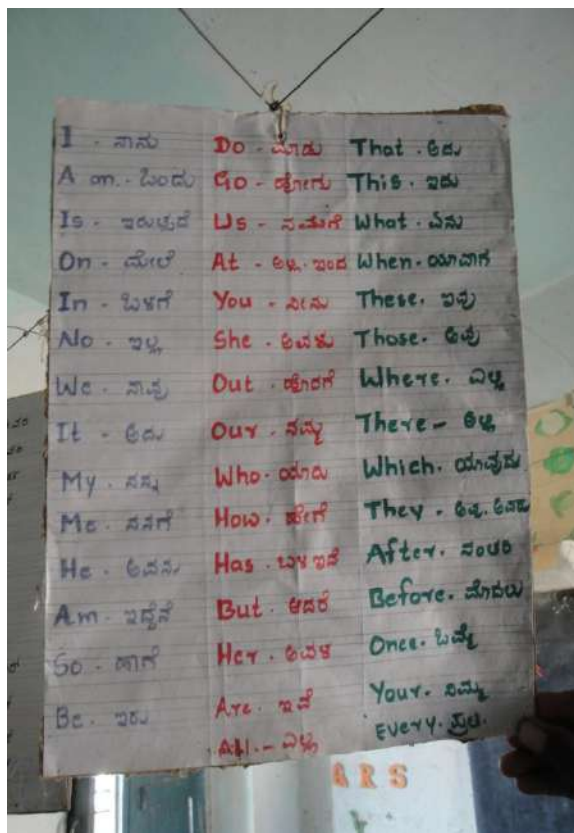 I - ನಾನು
A an. - ಒಂದು
Is - ಇರುತ್ತದೆ
On - ಮೇಲೆ
In - ಒಳಗೆ
No - ಇಲ್ಲ
We - ನಾವು
It - ಅದು
My - ನನ್ನ
Me - ನನಗೆ
He - ಅವನು
Am - ಇದ್ದೇನೆ
So - ಹಾಗೆ
Be - ಇರು
Do - ಮಾಡು
Go - ಹೋಗು
Us - ನಮಗೆ
At - ಅಲ್ಲಿ. ಇಂದ
You - ನೀನು
She - ಅವಳು
Out - ಹೊರಗೆ
Our - ನಮ್ಮ
Who - ಯಾರು
How - ಹೇಗೆ
Has - ಬಳಿ ಇದೆ
But - ಆದರೆ
Her - ಅವಳ
Are - ಇವೆ
All - ಎಲ್ಲಾ
That - ಅದು
This - ಇದು
What - ಏನು
When - ಯಾವಾಗ
These - ಇವು
Those - ಅವು
Where - ಎಲ್ಲಿ
There - ಅಲ್ಲಿ
Which - ಯಾವುದು
They - ಅವರು
After - ನಂತರ
Before - ಮೊದಲು
Once - ಒಮ್ಮೆ
Your - ನಿಮ್ಮ
Every - ಪ್ರತಿ
ARS